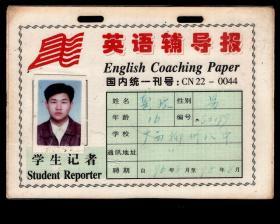 英语辅导报
English Coaching Paper
国内统一刊号：CN 22 - 0044
姓名 性别
年龄 16 编号
学校 广西柳州八中
通讯地址
聘期 自 年 月至 年 月
学生记者
Student Reporter